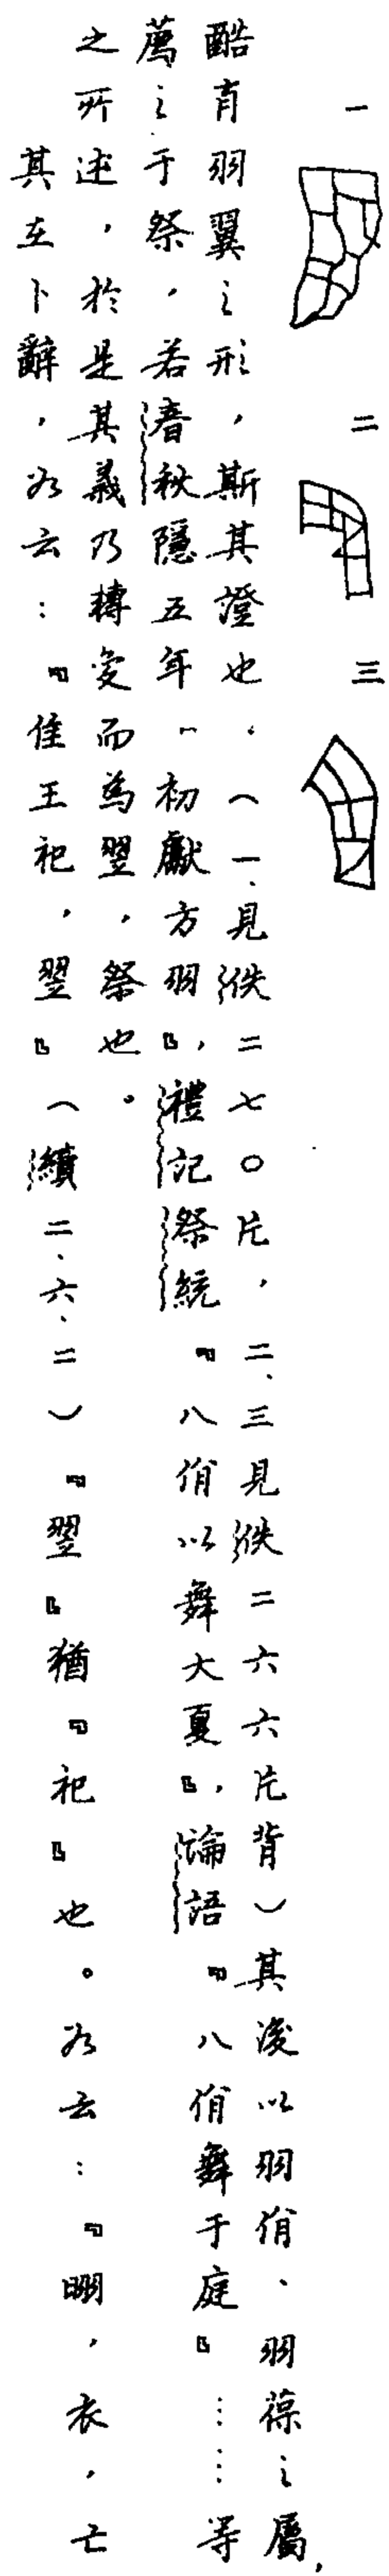 一 二 三
酷肖羽翼之形，斯其證也．（一、見佚二七〇片，二、三見佚二六六片背）其後以羽佾、羽葆之屬，
薦之于祭，若春秋隱五年『初獻方羽』，禮記祭統『八佾以舞大夏』，論語『八佾舞于庭』……等
之所述，於是其義乃轉变而為翌，祭也。
其在卜辭，如云：『隹王祀，翌』（續二、六、二）『翌』猶『祀』也。如云：『明，衣，亡